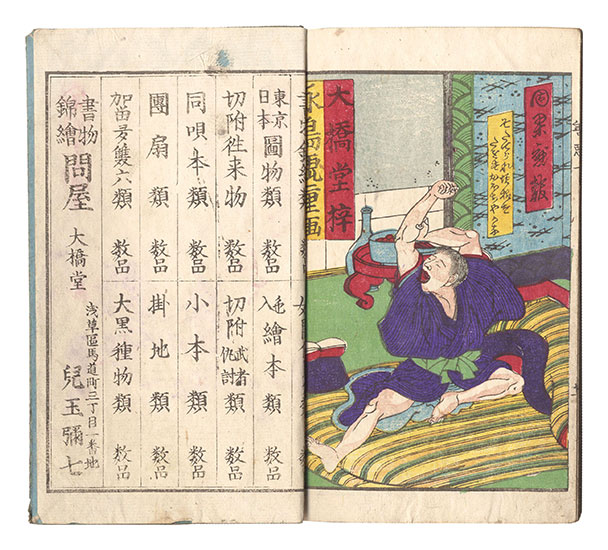 因果應報
大橋堂梓
東京
日本
圖物類 数品
色入繪本類 数品
切附往来物 数品
切附武者仇討 数品
同唄本類 数品
小本類 数品
團扇類 数品
掛地類 数品
加留多雙六類 数品
大黒種物類 数品
書物
錦繪
問屋 大橋堂
浅草區馬道町三丁目一番地
兒玉彌七